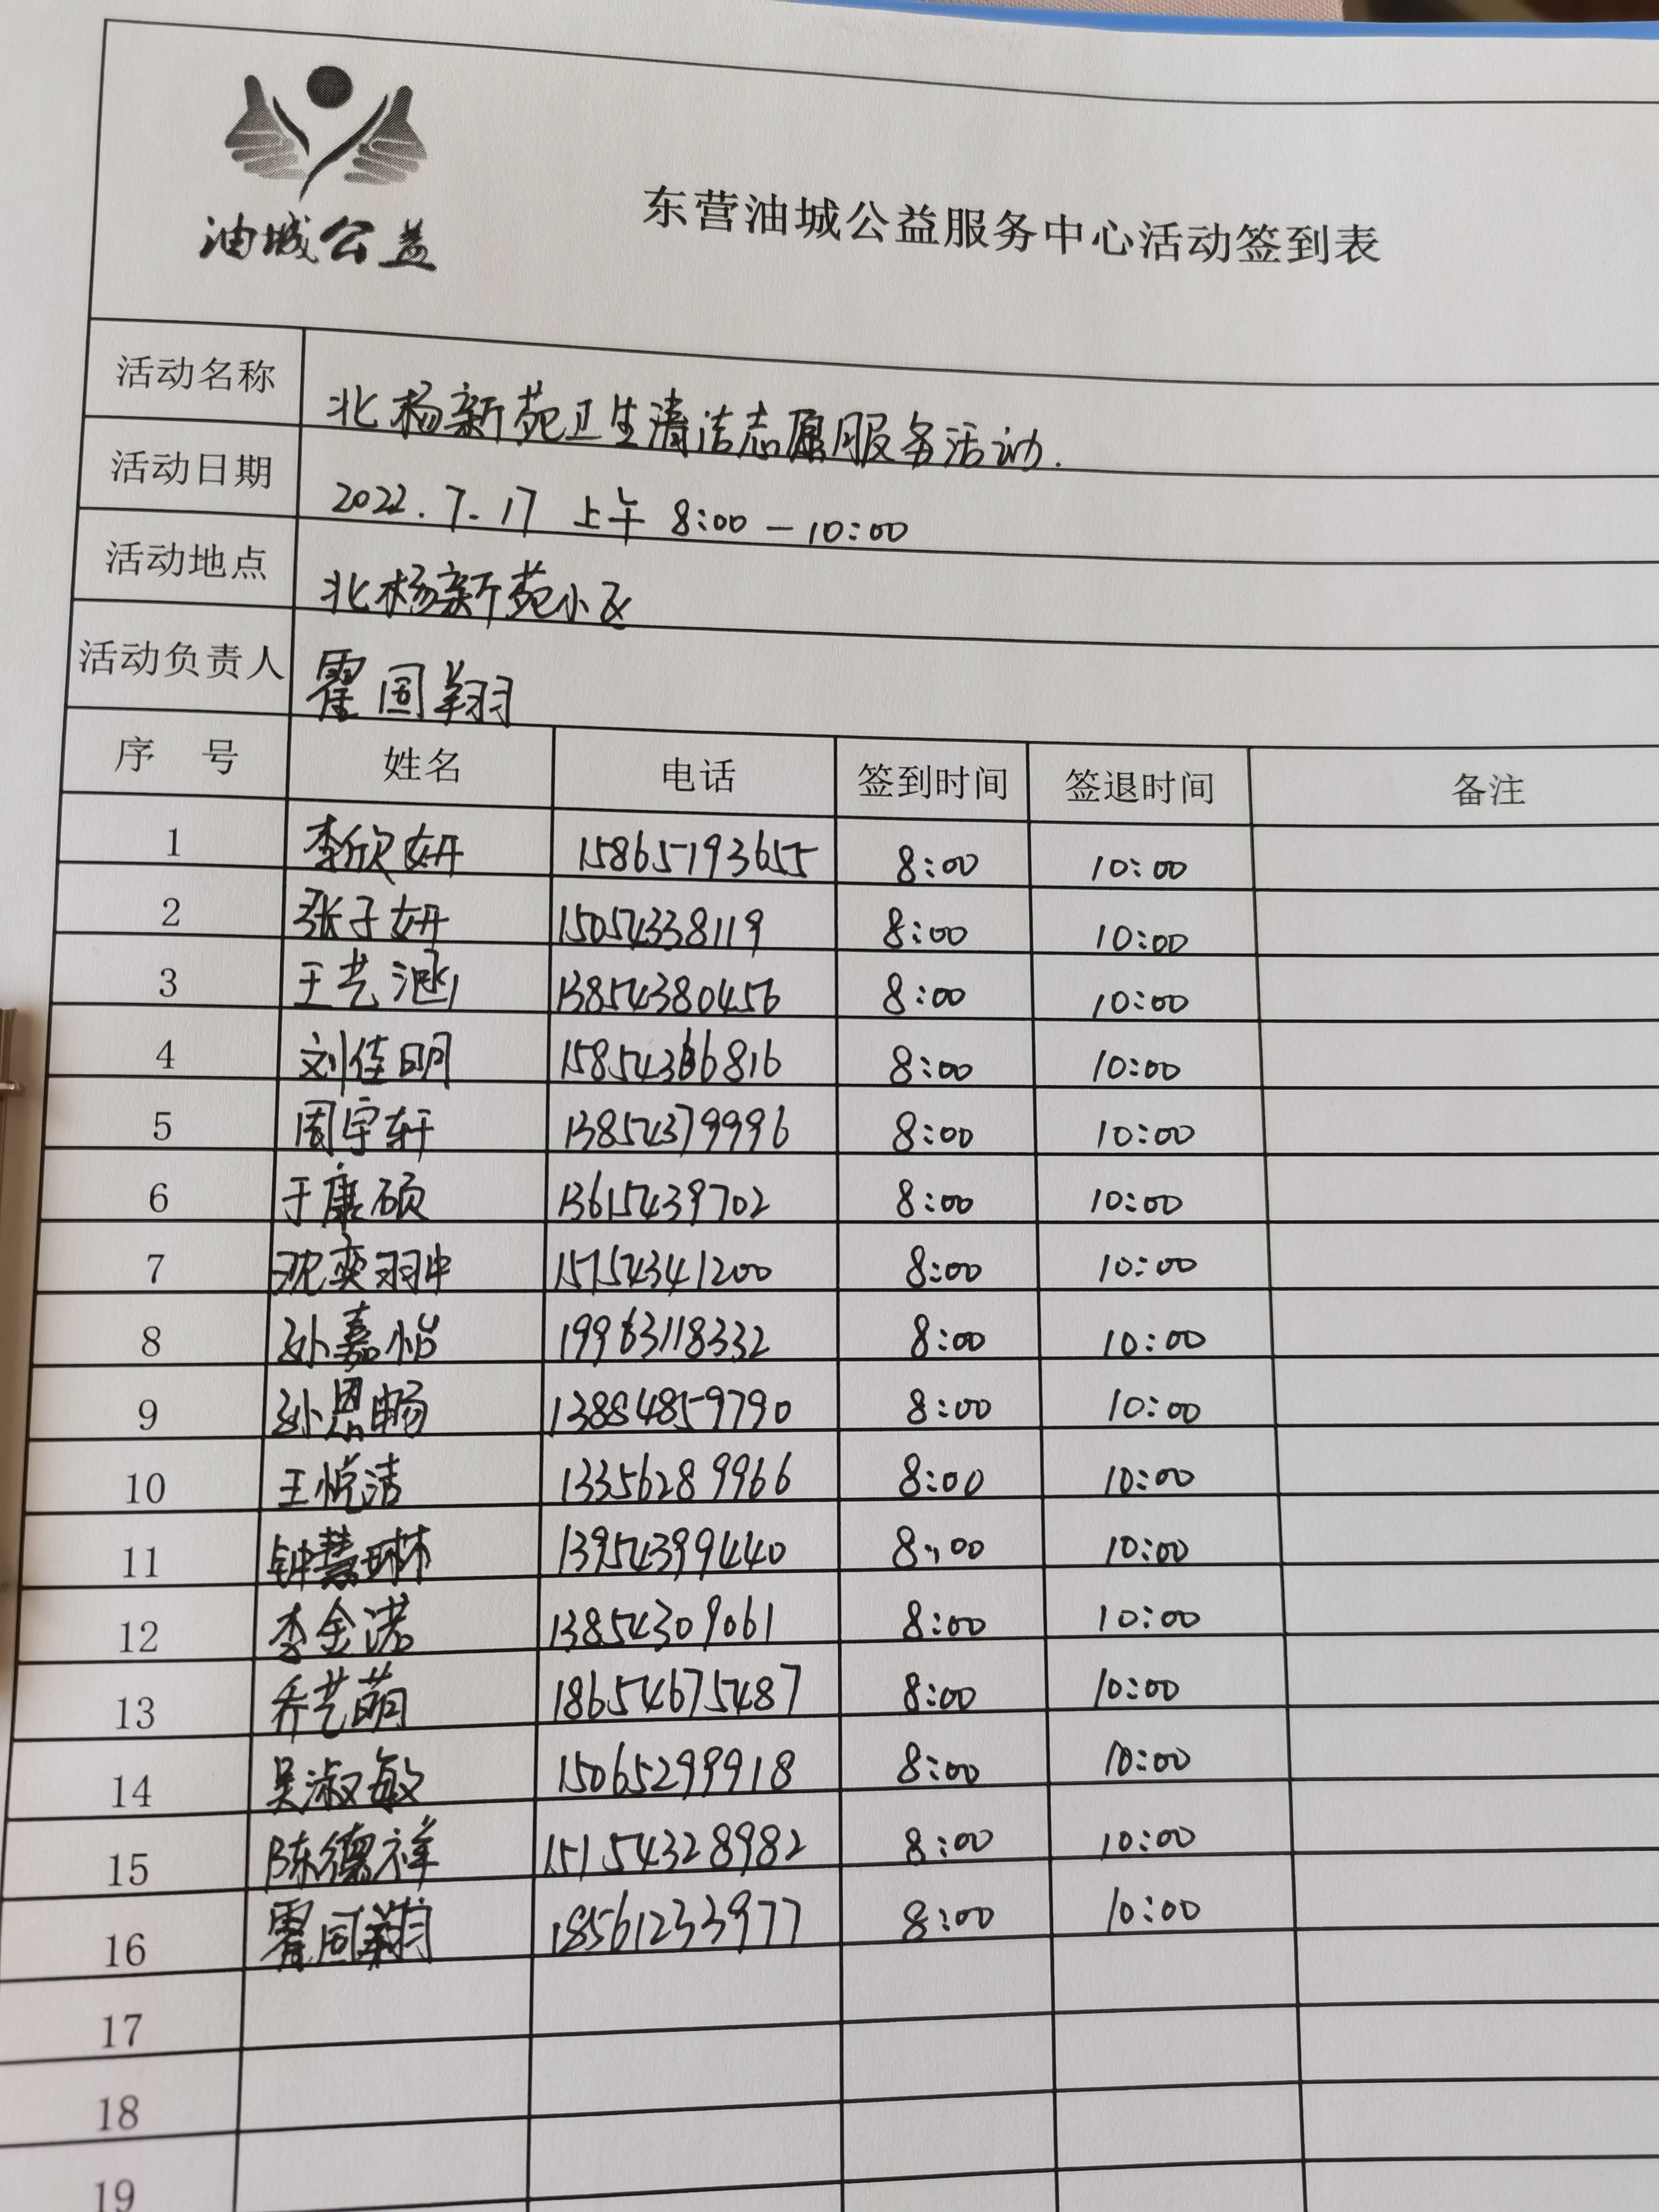 油城公益
东营油城公益服务中心活动签到表
活动名称 北杨新苑卫生清洁志愿服务活动.
活动日期 2022.7.17 上午 8:00-10:00
活动地点 北杨新苑小区
活动负责人 霍国翔
序号 姓名 电话 签到时间 签退时间 备注
1 李欣妍 15865193655 8:00 10:00
2 张子妍 15054338119 8:00 10:00
3 王艺涵 13854380456 8:00 10:00
4 刘佳明 15854366816 8:00 10:00
5 周宇轩 13854379996 8:00 10:00
6 于康硕 13615439702 8:00 10:00
7 沈奕翀 15754341200 8:00 10:00
8 孙嘉怡 19963118332 8:00 10:00
9 孙恩畅 13884859790 8:00 10:00
10 王悦洁 13356289966 8:00 10:00
11 钟慧琳 13954399440 8:00 10:00
12 李金诺 13854309061 8:00 10:00
13 乔艺萌 18654675487 8:00 10:00
14 吴淑敏 15065299918 8:00 10:00
15 陈德祥 15154328982 8:00 10:00
16 霍国翔 18561233977 8:00 10:00
17
18
19